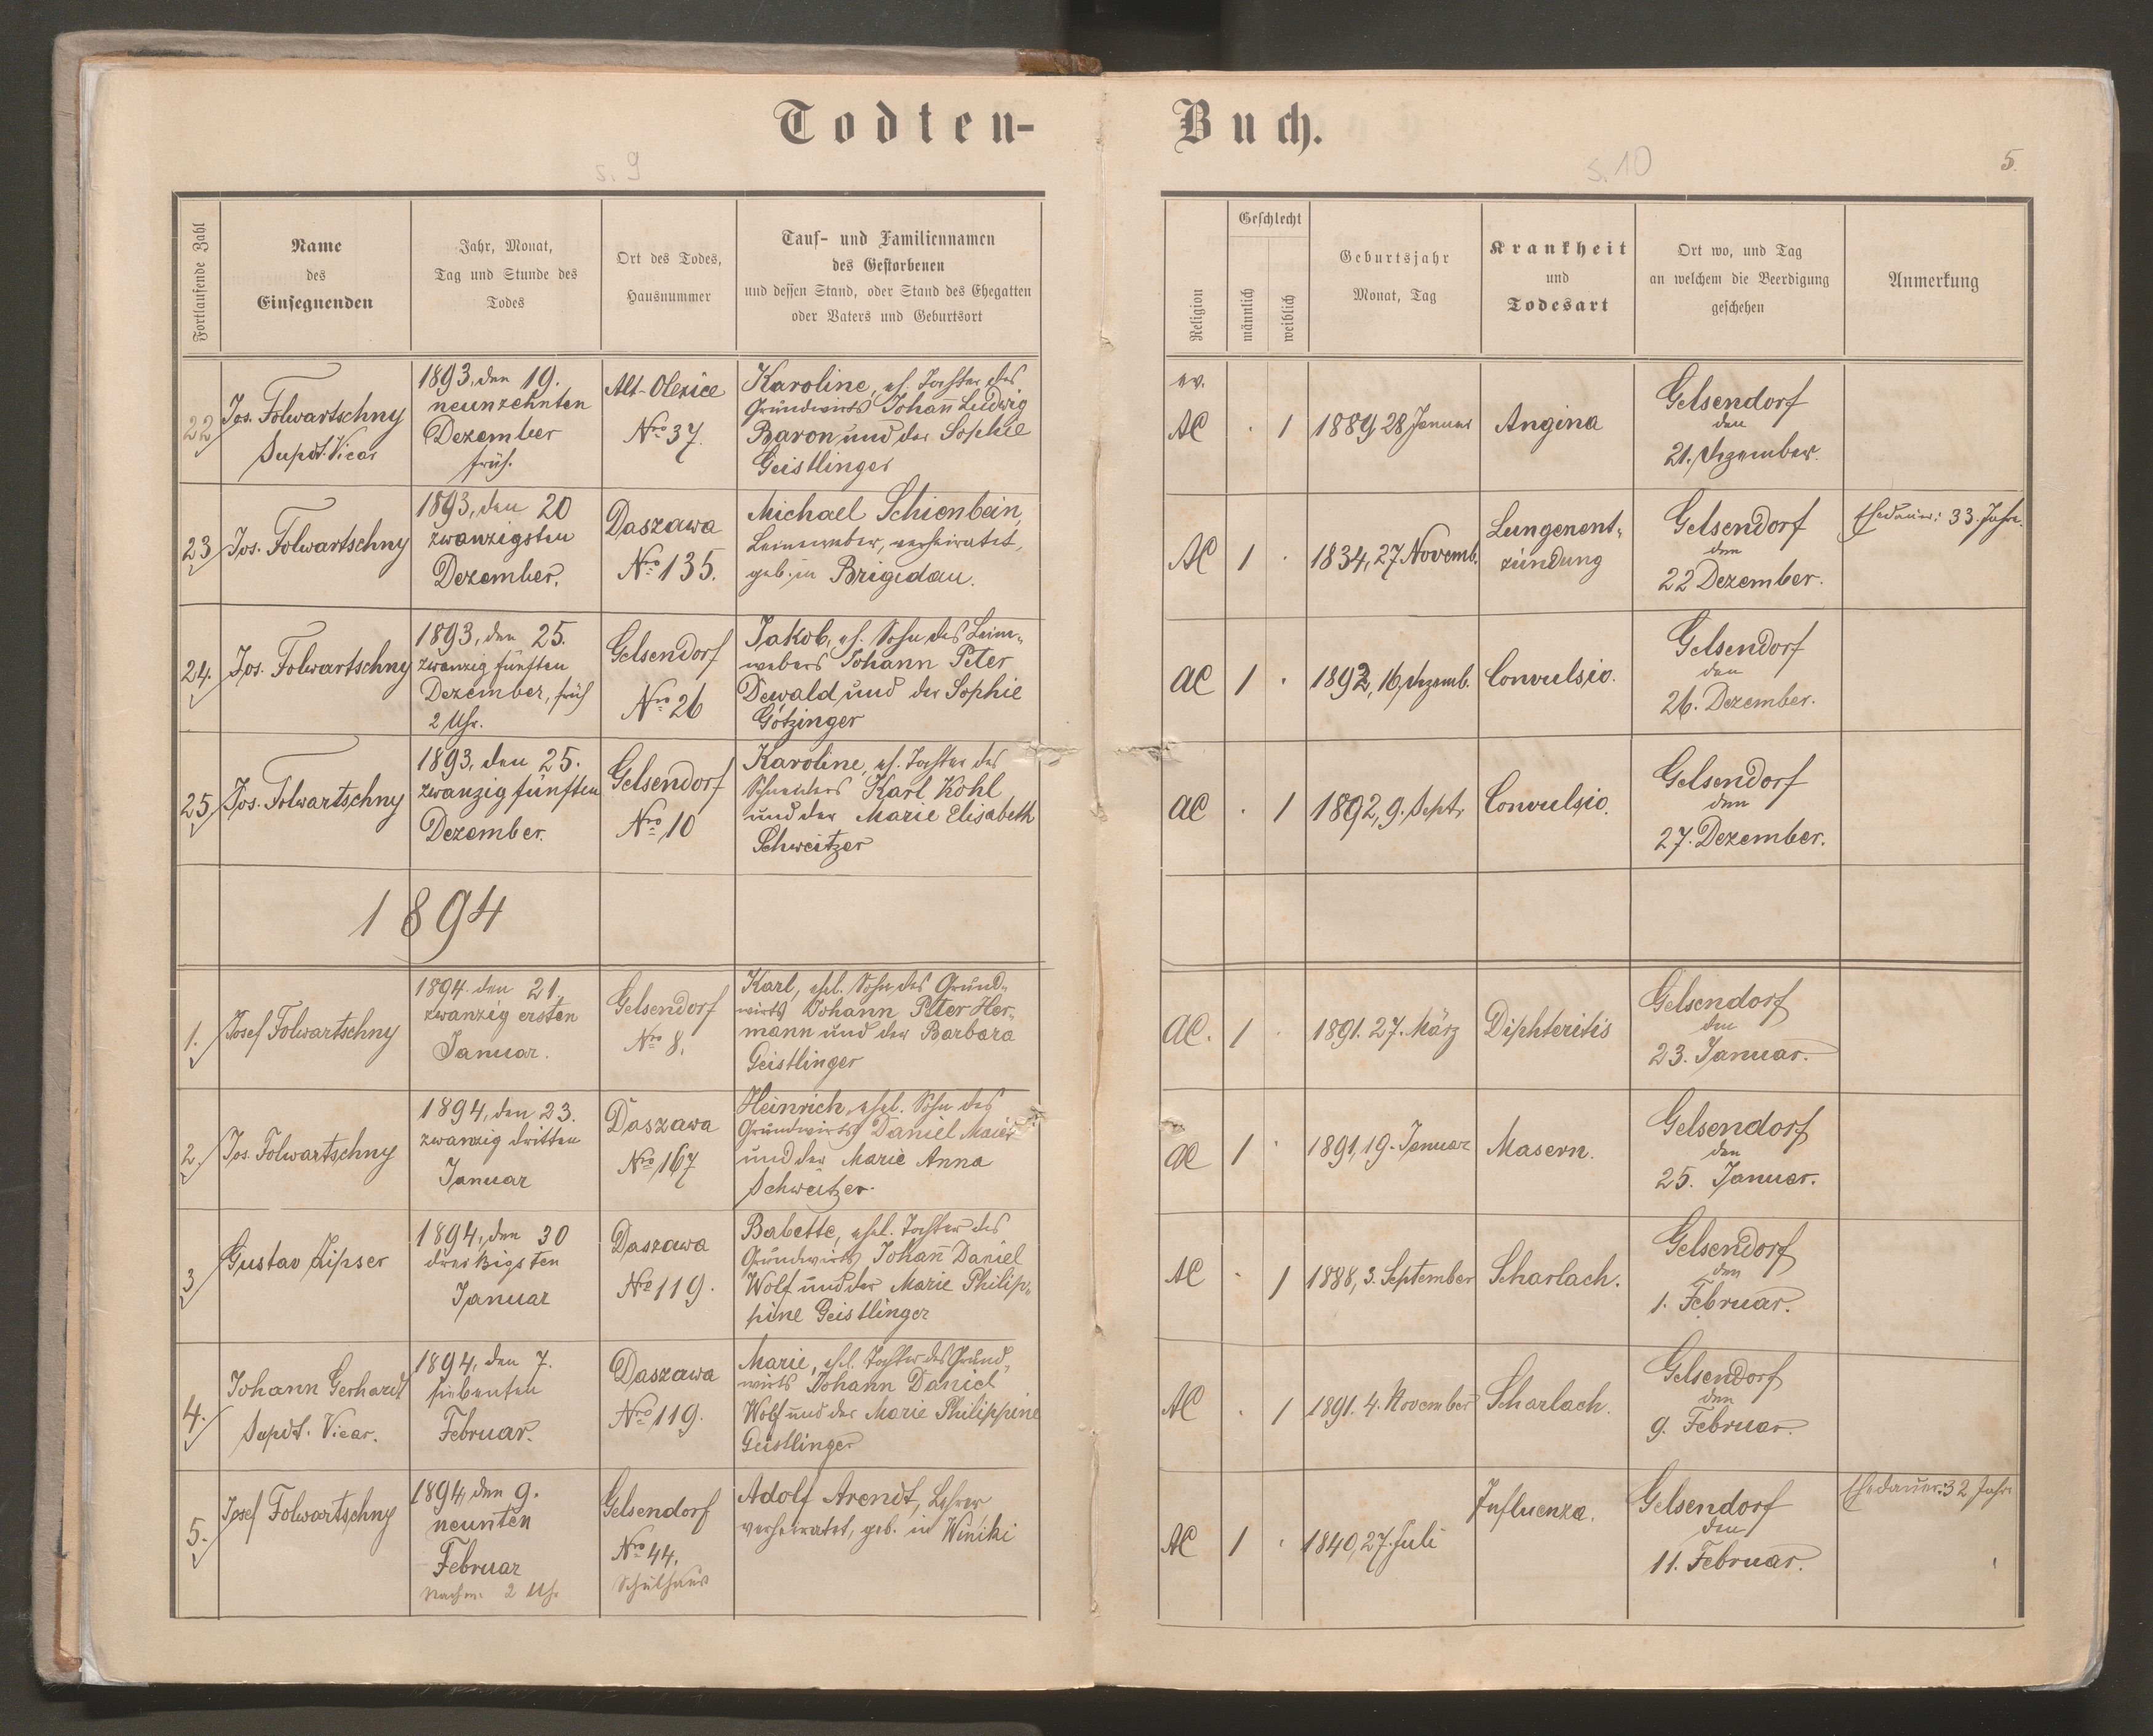 Todten-
Buch.
s. 9
s. 10
5.
Fortlaufende Zahl
Name
des
Einsegnenden
Jahr, Monat,
Tag und Stunde des
Todes
Ort des Todes,
Hausnummer
Tauf- und Familiennamen
des Gestorbenen
und dessen Stand, oder Stand des Ehegatten
oder Vaters und Geburtsort
Religion
Geschlecht
männlich
weiblich
Geburtsjahr
Monat, Tag
Krankheit
und
Todesart
Ort wo, und Tag
an welchem die Beerdigung
geschehen
Anmerkung
22
Jos. Folwartschny
Supdt. Vicar
1893, den 19.
neunzehnten
Dezember
früh.
Alt-Olexice
Nro 37.
Karoline, eh. Tochter des
Grundwirts Johann Ludwig
Baron und der Sophie
Geistlinger
ev.
AC
. 1
1889, 28 Januar
Angina
Gelsendorf
den
21. Dezember.
23
Jos. Folwartschny
1893, den 20
zwanzigsten
Dezember.
Daszawa
Nro 135.
Michael Schienbein,
Leinenweber, verheiratet,
geb. in Brigidau.
AC
1 .
1834, 27. Novemb.
Lungenent-
zündung
Gelsendorf
den
22 Dezember.
Ehedauer: 33 Jahre.
24.
Jos. Folwartschny
1893, den 25.
zwanzig fünften
Dezember, früh
2 Uhr.
Gelsendorf
Nro 26
Jakob, eh. Sohn des Lein-
webers Johann Peter
Dewald und der Sophie
Götzinger
AC
1 .
1892, 16. Dezemb.
Convulsio.
Gelsendorf
den
26. Dezember.
25
Jos. Folwartschny
1893, den 25.
zwanzig fünften
Dezember.
Gelsendorf
Nro 10
Karoline, eh. Tochter des
Schneiders Karl Kohl
und der Marie Elisabeth
Schweitzer
AC
. 1
1892, 9. Sept.
Convulsio.
Gelsendorf
den
27. Dezember.
1894
1.
Josef Folwartschny
1894. den 21.
zwanzig ersten
Januar.
Gelsendorf
Nro 8.
Karl, ehel. Sohn des Grund-
wirts Johann Peter Her-
mann und der Barbara
Geistlinger
AC.
1 .
1891. 27. März
Diphteritis
Gelsendorf
den
23. Januar.
2.
Jos. Folwartschny
1894, den 23.
zwanzig dritten
Januar
Daszawa
Nro 167
Heinrich, ehel. Sohn des
Grundwirts Daniel Maier
und der Marie Anna
Schweitzer.
AC
1 .
1891, 19. Januar
Masern.
Gelsendorf
den
25. Januar.
3
Gustav Zipser
1894, den 30
dreissigsten
Januar
Daszawa
No 119.
Babette, ehel. Tochter des
Grundwirts Johann Daniel
Wolf und der Marie Philip-
pine Geistlinger
AC
. 1
1888, 3. September
Scharlach.
Gelsendorf
den
1. Februar.
4.
Johann Gerhardt
Supdt. Vicar.
1894, den 7.
siebenten
Februar.
Daszawa
Nro 119.
Marie, ehel. Tochter des Grund-
wirts Johann Daniel
Wolf und der Marie Philippine
Geistlinger
AC
. 1
1891. 4. November
Scharlach.
Gelsendorf
den
9. Februar.
5.
Josef Folwartschny
1894, den 9.
neunten
Februar
Nachm. 2 Uhr
Gelsendorf
Nro 44.
Schulhaus
Adolf Arendt, Lehrer,
verheiratet, geb. in Winiki
AC
1 .
1840, 27. Juli
Influenza.
Gelsendorf
den
11. Februar.
Ehedauer: 32 Jahre